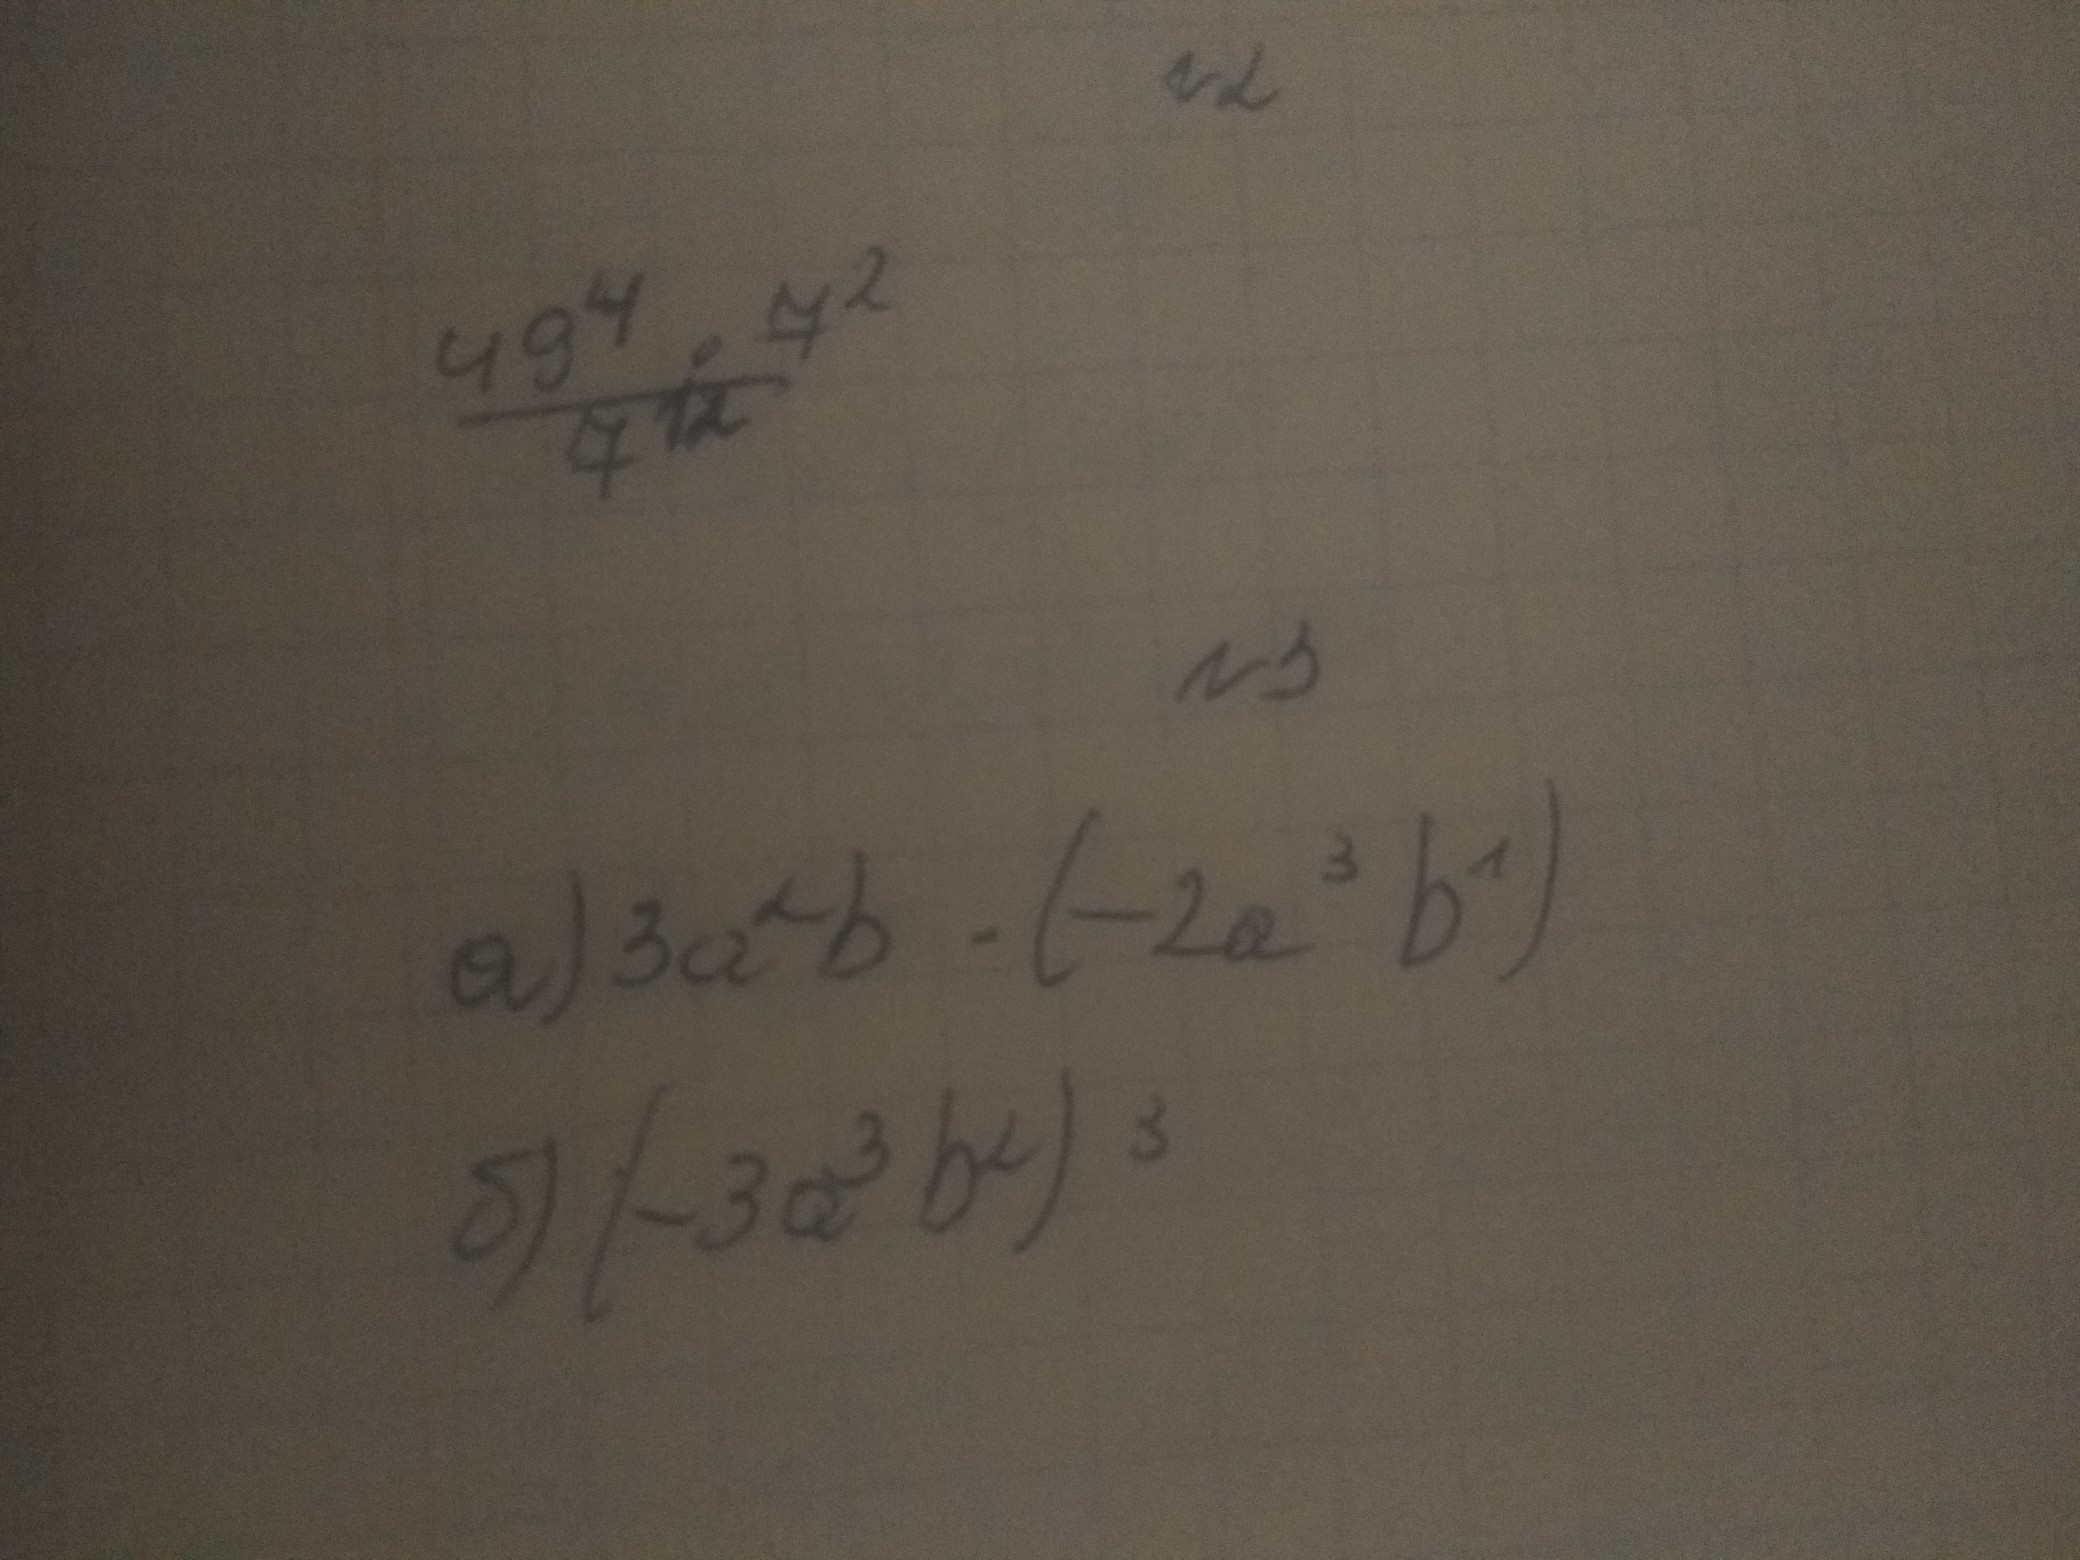 №2
49⁴ · 7²
7¹²
№3
а) 3a²b · (-2a³b¹)
б) (-3a³b²)³